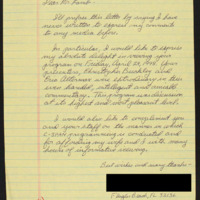 Dear Mr. Lamb:
I'd preface this letter by saying I have
never written to express my comments
to any media before.
In particular, I would like to express
my absolute delight in viewing your
program on Friday, April 25, 1995. Your
guests, Christopher Buckley and
Eric Alterman were extraordinary in their
even handed, intelligent and
commentary. This program was television
at its highest and most pleasant level.
I would also like to compliment you
and your staff on the manner in which
C-SPAN programming is conducted and
for affording my wife and I with many
hours of informative viewing.
Best wishes and many thanks -